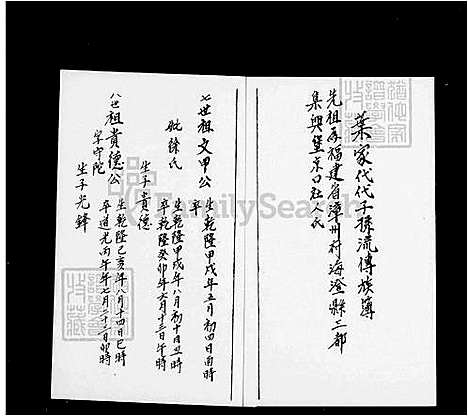 葉家代代子孫流傳族簿
先祖居福建省漳州府海澄縣三都
集興堡京口社人氏
七世祖文甲公
生乾隆甲戌年五月初四日酉時
卒
妣蘇氏
生乾隆甲戌年八月初十日丑時
卒乾隆癸卯年六月十三日午時
生子貴德
八世祖貴德公
字守陀
生乾隆己亥年八月十四日巳時
卒道光丙午年七月二十二日卯時
生子光鋒
FamilySearch